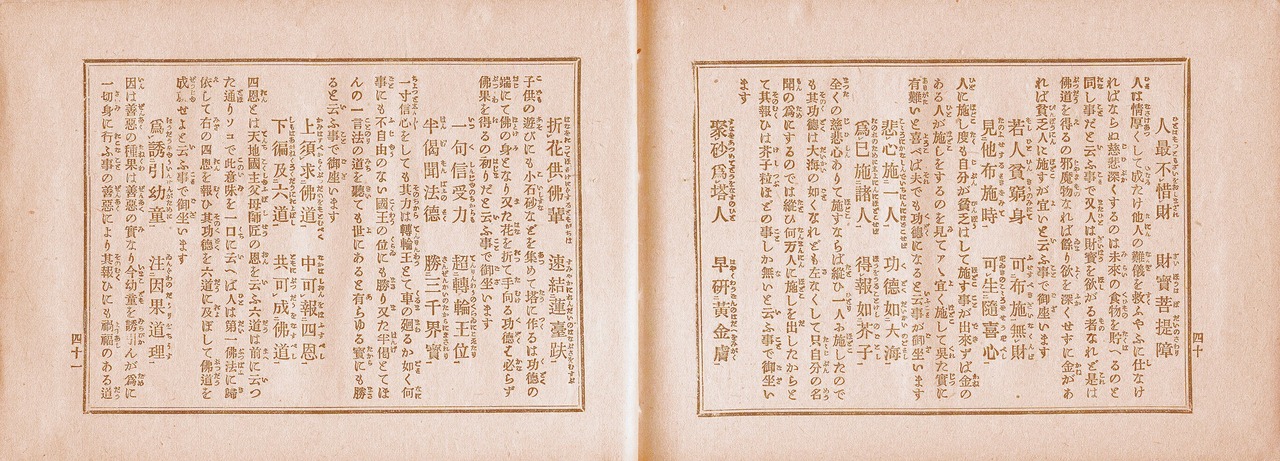 人最不惜財　財寳菩提障
人は情厚くして成たけ他人の難儀を救ふやふに仕なけ
ればならぬ慈悲深くするのは未來の食物を貯へるのと
同し事だと云ふ事で又人は財寳を欲がる者なれど是は
佛道を得るの邪魔物なれば餘り欲を深くせずに金があ
れば貧乏人に施すが宜いと云ふ事で御座います
若人貧窮身　可布施無財
見他布施時　可生隨喜心
人に施し度も自分が貧乏はして施す事が出來ずば金の
ある人が施しをするのを見てアヽ宜く施して呉た實に
有難いと喜べば夫でも功德になると云事が御坐います
悲心施一人　功德如大海
爲己施諸人　得報如芥子
全くの慈悲心ありて施すならば縱ひ一人ふ施したので
も其功德は大海の如くなれども左なくして只自分の名
聞の爲にするのでは縱ひ何万人に施しを出したからと
て其報ひは芥子粒ほどの事しか無いと云ふ事で御坐い
ます
聚砂爲塔人　早研黃金膚
四十
折花供佛輩　速結連臺趺
子供の遊びにも小石砂などを集めて塔に作るは功德の
端にて佛の身となり又た花を折て手向る功德そ必らず
佛果を得るの初りだと云ふ事で御坐います
一句信受力　超轉輪王位
半偈聞法德　勝三千界寳
一寸信心をしても其力は轉輪王とて車の廻るか如く何
事にも不自由のない國王の位にも勝り又た半偈とてほ
んの一言法の道を聽ても世にあると有らゆる寳にも勝
ると云ふ事で御座います
上須求佛道　中可報四恩
下徧及六道　共可成佛道
四恩とは天地國主父母師匠の恩を云ふ六道は前に云つ
た通りソコで此意味を一口に云へば人は第一佛法に歸
依して右の四恩を報ひ其功德を六道に及ぼして佛道を
成しせよと云ふ事で御坐います
爲誘引幼童　注因果道理
因は善惡の種果は善惡の實なり今幼童を誘引んが爲に
一切身に行ふ事の善惡により其報ひにも禍福のある道
四十一